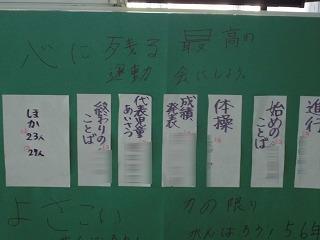 心に残る最高の
運動会にしよう。
進行
始めのことば
体操
成績発表
代表児童あいさつ
終わりのことば
ほか
23人
29人
よさこい
力の限り
がんばろう!
がんばろう!56年